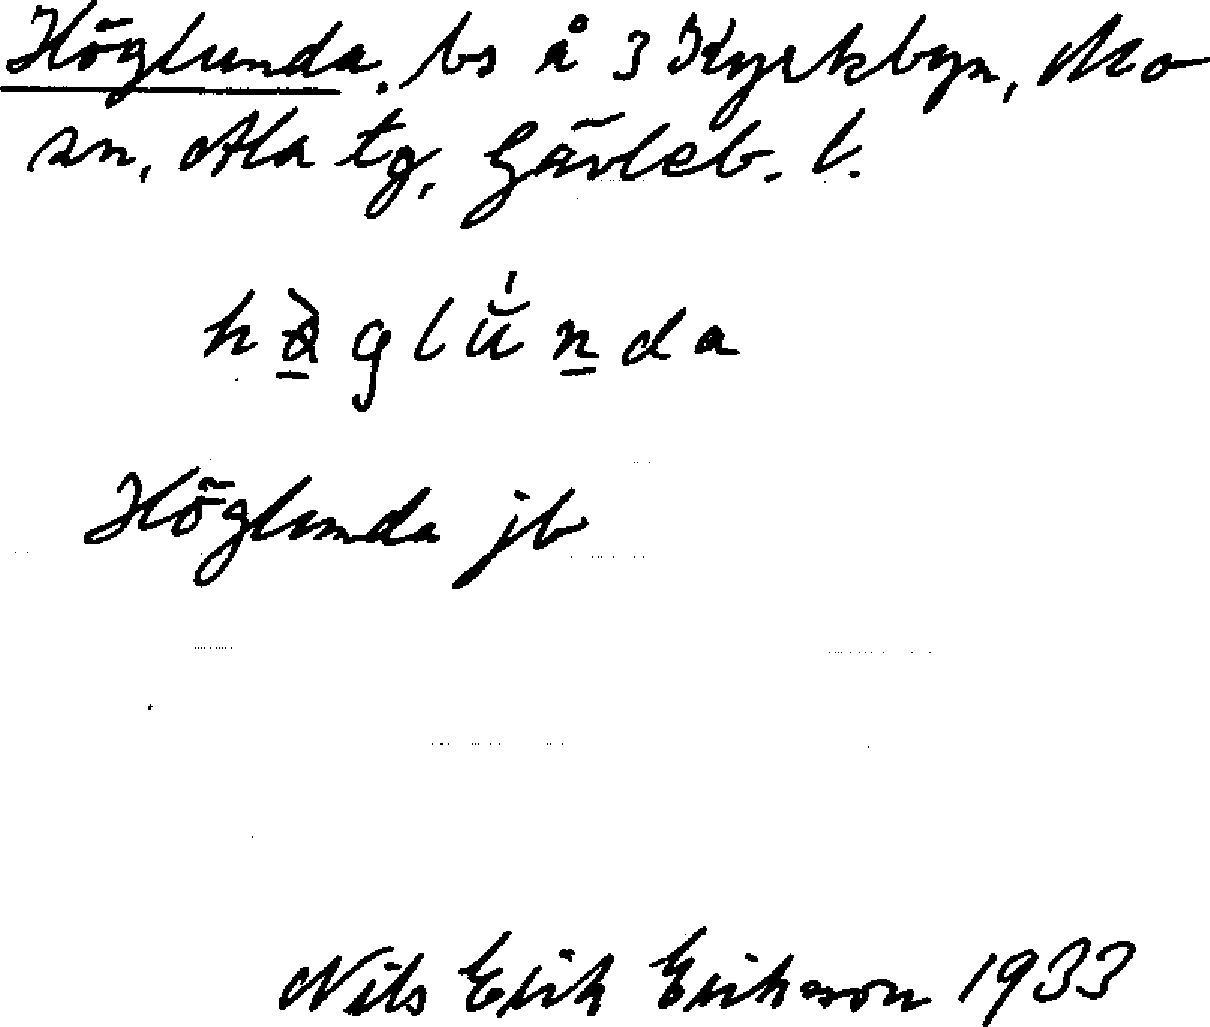 Höglunda, bs å 3 Kyrkbyn, Mo
sn, Ala tg, Gävleb. l.
Höglunda jb
Nils Erik Erikson 1933